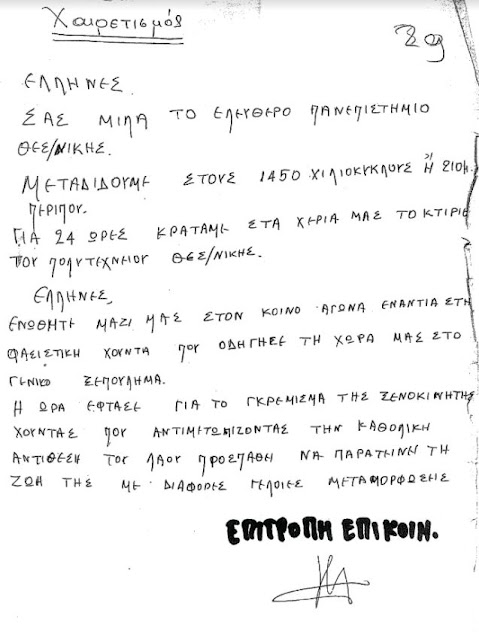 Χαιρετισμός
ΕΛΛΗΝΕΣ.
ΣΑΣ ΜΙΛΑ ΤΟ ΕΛΕΥΘΕΡΟ ΠΑΝΕΠΙΣΤΗΜΙΟ
ΘΕΣ/ΝΙΚΗΣ.
ΜΕΤΑΔΙΔΟΥΜΕ ΣΤΟΥΣ 1450 ΧΙΛΙΟΚΥΚΛΟΥΣ Ή 210Μ.
ΠΕΡΙΠΟΥ.
ΓΙΑ 24 ΩΡΕΣ ΚΡΑΤΑΜΕ ΣΤΑ ΧΕΡΙΑ ΜΑΣ ΤΟ ΚΤΙΡΙΟ
ΤΟΥ ΠΟΛΥΤΕΧΝΕΙΟΥ ΘΕΣ/ΝΙΚΗΣ.
ΕΛΛΗΝΕΣ,
ΕΝΩΘΗΤΕ ΜΑΖΙ ΜΑΣ ΣΤΟΝ ΚΟΙΝΟ ΑΓΩΝΑ ΕΝΑΝΤΙΑ ΣΤΗ
ΦΑΣΙΣΤΙΚΗ ΧΟΥΝΤΑ ΠΟΥ ΟΔΗΓΗΣΕ ΤΗ ΧΩΡΑ ΜΑΣ ΣΤΟ
ΓΕΝΙΚΟ ΞΕΠΟΥΛΗΜΑ.
Η ΩΡΑ ΕΦΤΑΣΕ ΓΙΑ ΤΟ ΓΚΡΕΜΙΣΜΑ ΤΗΣ ΞΕΝΟΚΙΝΗΤΗΣ
ΧΟΥΝΤΑΣ ΠΟΥ ΑΝΤΙΜΕΤΩΠΙΖΟΝΤΑΣ ΤΗΝ ΚΑΘΟΛΙΚΗ
ΑΝΤΙΘΕΣΗ ΤΟΥ ΛΑΟΥ ΠΡΟΣΠΑΘΗ ΝΑ ΠΑΡΑΤΕΙΝΗ ΤΗ
ΖΩΗ ΤΗΣ ΜΕ ΔΙΑΦΟΡΕΣ ΓΕΛΟΙΕΣ ΜΕΤΑΜΟΡΦΩΣΕΙΣ
ΕΠΙΤΡΟΠΗ ΕΠΙΚΟΙΝ.